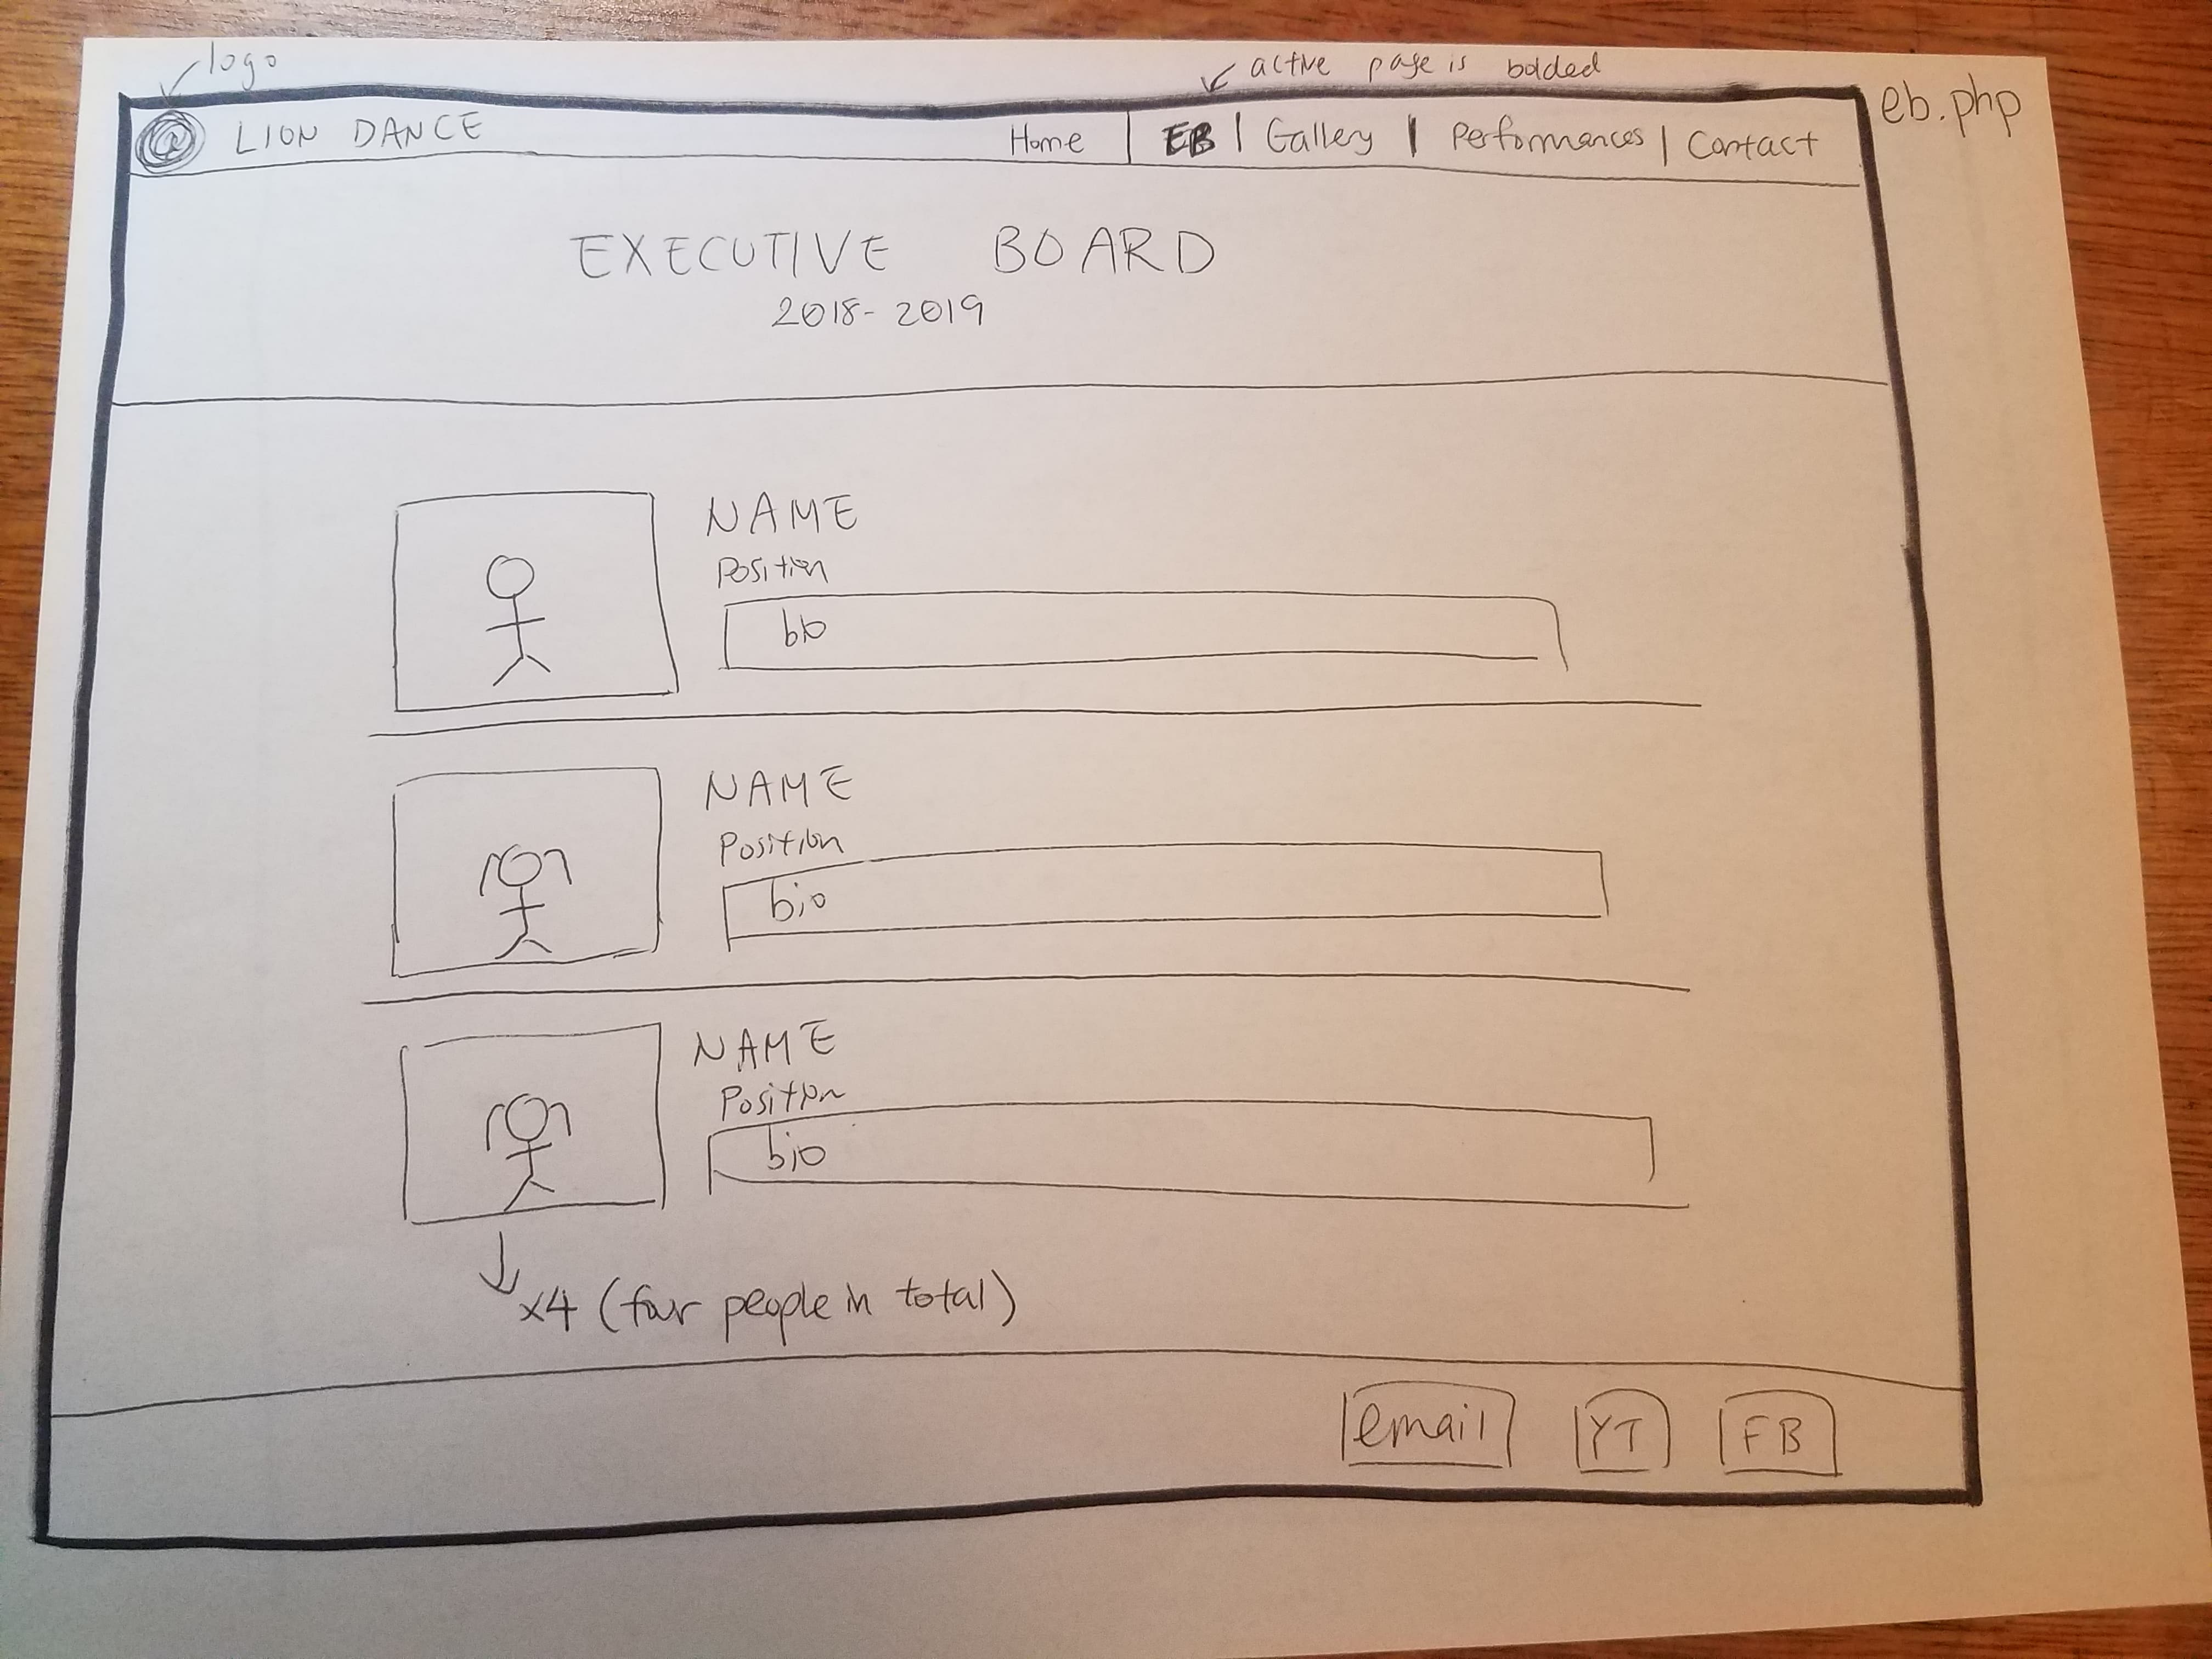 logo
active page is bolded
eb.php
LION DANCE
Home | EB | Gallery | Performances | Contact
EXECUTIVE BOARD
2018-2019
NAME
Position
bio
NAME
Position
bio
NAME
Position
bio
x4 (four people in total)
email YT FB